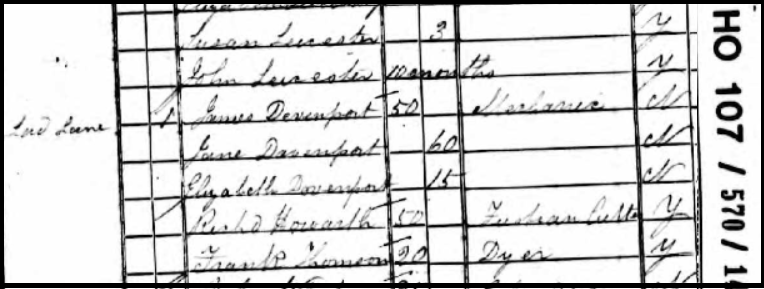 Susan Leicester 3 Y
John Leicester 10 months Y
Lord Lane 1 James Devenport 50 Mechanic N
Jane Davenport 60 N
Elizabeth Dovenport 15 N
Richd Howarth 50 Fustian Cutter Y
Frank Thomson 20 Dyer Y
HO 107 / 570 / 14